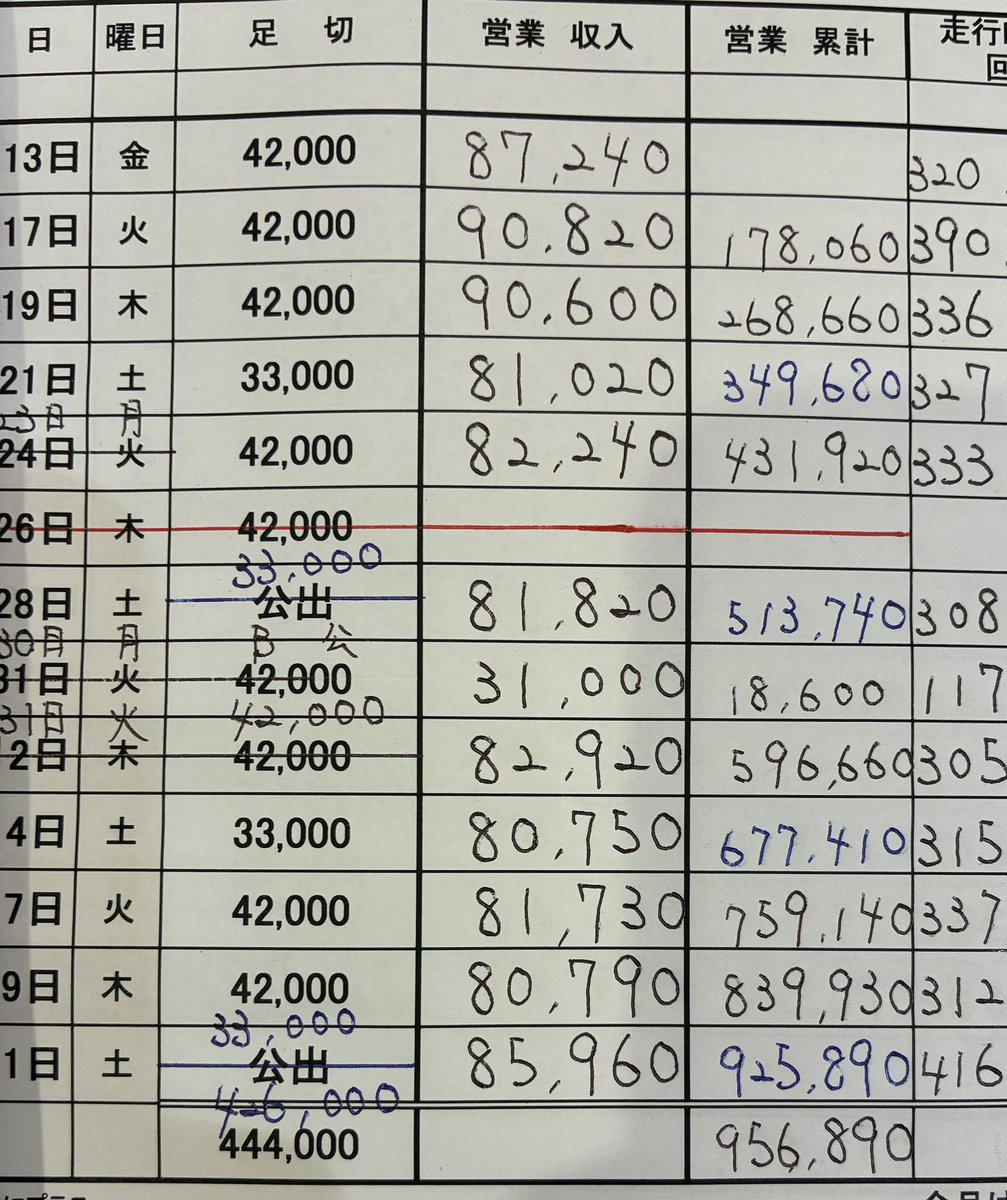 日 曜日 足 切 営業 収入 営業 累計 走行
回
13日 金 42,000 87,240 320
17日 火 42,000 90,820 178,060 390
19日 木 42,000 90,600 268,660 336
21日 土 33,000 81,020 349,680 327
23日 月
24日 火 42,000 82,240 431,920 333
26日 木 42,000
33,000
28日 土 公出 81,820 513,740 308
30月 月 B 公
31日 火 42,000 31,000 18,600 117
31日 火 42,000
2日 木 42,000 82,920 596,660 305
4日 土 33,000 80,750 677,410 315
7日 火 42,000 81,730 759,140 337
9日 木 42,000 80,790 839,930 312
33,000
1日 土 公出 85,960 925,890 416
426,000
444,000 956,890